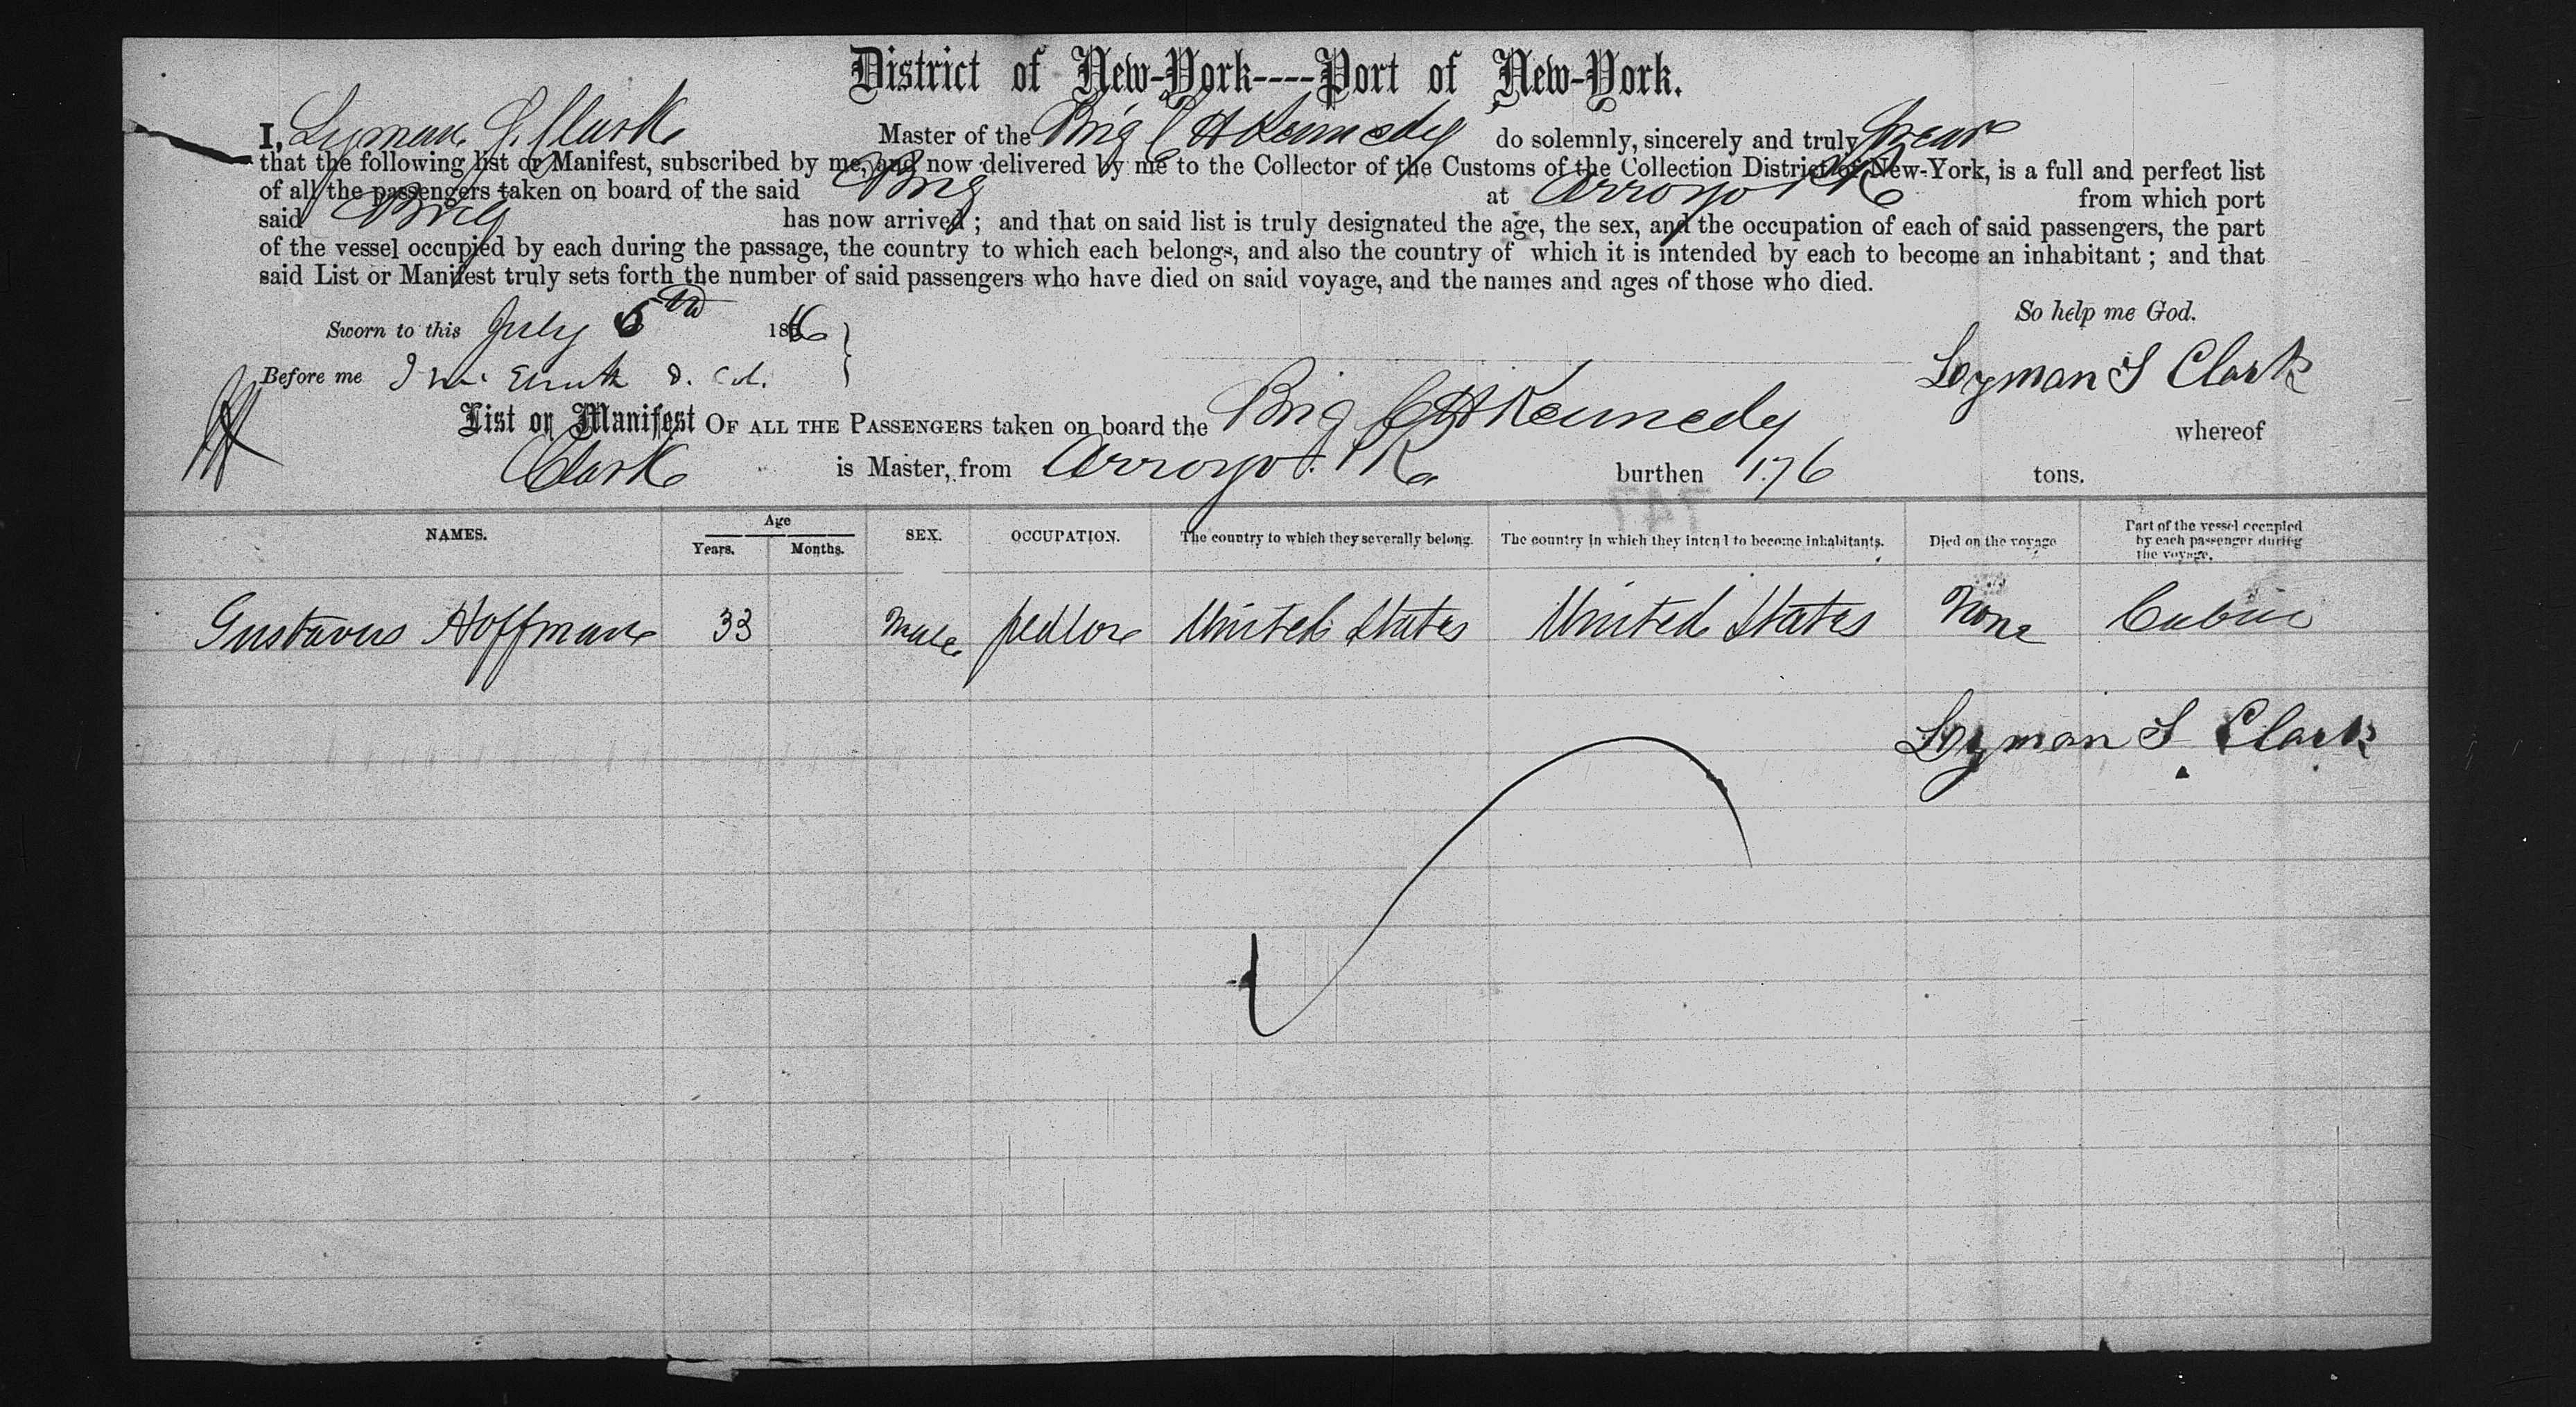 District of New-York----Port of New-York.
I, Lyman S. Clark Master of the Brig C H Kennedy do solemnly, sincerely and truly Swear
that the following list or Manifest, subscribed by me, and now delivered by me to the Collector of the Customs of the Collection District of New-York, is a full and perfect list
of all the passengers taken on board of the said Brig at Arroyo P R from which port
said Brig has now arrived ; and that on said list is truly designated the age, the sex, and the occupation of each of said passengers, the part
of the vessel occupied by each during the passage, the country to which each belongs, and also the country of which it is intended by each to become an inhabitant ; and that
said List or Manifest truly sets forth the number of said passengers who have died on said voyage, and the names and ages of those who died.
So help me God.
Sworn to this July 5 1866
Lyman S Clark
Before me
List or Manifest OF ALL THE PASSENGERS taken on board the Brig C H Kennedy whereof
Clark is Master, from Arroyo P. R. burthen 176 tons.
NAMES. Age Years. Months. SEX. OCCUPATION. The country to which they severally belong. The country in which they intend to become inhabitants. Died on the voyage Part of the vessel occupied by each passenger during the voyage.
Gustavus Hoffman 33 Male pedlor United States United States None Cabin
Lyman S Clark